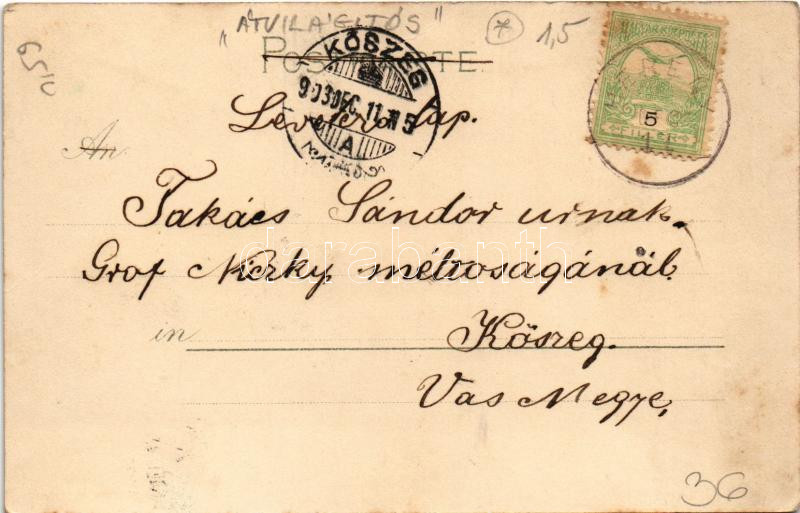 "ÁTVILÁGÍTÓS"
1,5
65IV
POSTKARTE.
KŐSZEG
903 DEC. 11. N 5
A
MAGYAR KIR. POSTA
5
FILLÉR
Levelező lap.
An
Takács Sándor urnak.
Grof Niczky méltoságánál.
in
Kőszeg.
Vas Megye,
36
darabanth